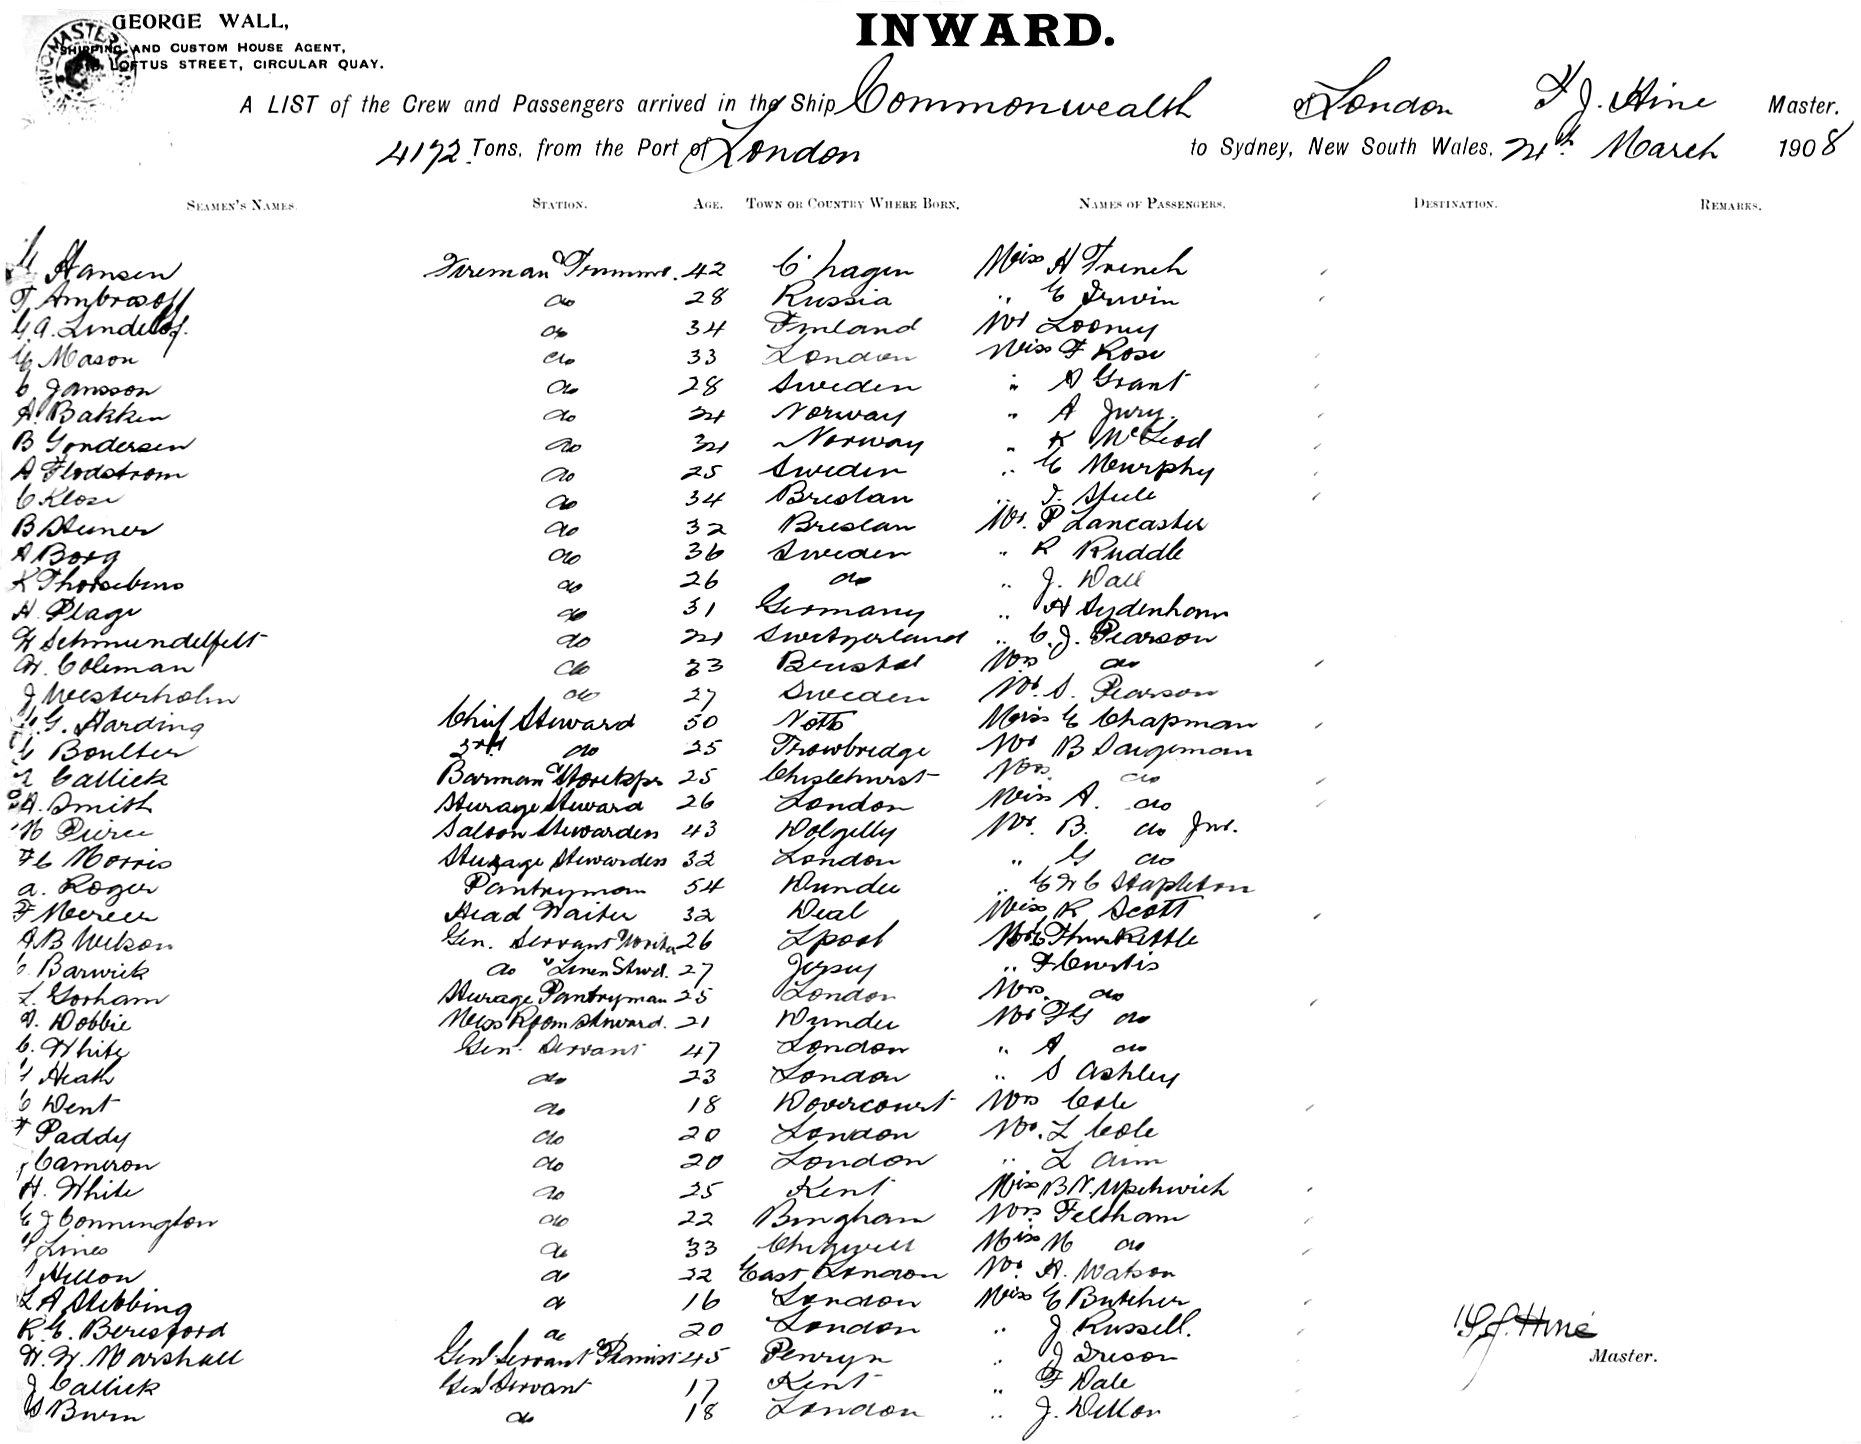 GEORGE WALL,
SHIPPING AND CUSTOM HOUSE AGENT,
LOFTUS STREET, CIRCULAR QUAY.
INWARD.
A LIST of the Crew and Passengers arrived in the Ship Commonwealth of London F J. Hine Master.
4172 Tons, from the Port of London to Sydney, New South Wales, 24th March 1908
SEAMEN'S NAMES. STATION. AGE. TOWN OR COUNTRY WHERE BORN. NAMES OF PASSENGERS. DESTINATION. REMARKS.
Hansen Fireman & Trimmer. 42 C'hagen Miss H French
T Ambrosoff do 28 Russia " E Irwin
G.A. Lindelof. do 34 Finland Mr Looney
G Mason do 33 London Miss F Rose
C Jansson do 28 Sweden " A Grant
A. Bakken do 24 Norway " A Jury.
B Gondersen do 34 Norway " K McLeod
A Flodstrom do 25 Sweden " E Murphy
C Klose do 34 Breslau " J. Steele
B Steiner do 32 Breslau Mr. P Lancaster
A Borg do 36 Sweden " R Ruddle
K do 26 do " J. Wall
H. Plage do 31 Germany " H Sydenham
do 24 Switzerland " C. J. Pearson
W. Coleman do 33 Bristol Mrs do
J Westerholm do 27 Sweden Mr. S. Pearson
G. Harding Chief Steward 50 Notts Miss E Chapman
Boulter 3rd do 25 Trowbridge Mr B Saugeman
Callick Barman & Storekpr 25 Chislehurst Mrs. do
A. Smith Steerage Steward 26 London Miss A. do
M Pierce Saloon Stewardess 43 Dolgelly Mr. B. do Jnr.
F C Morris Steerage Stewardess 32 London " G do
A. Roger Pantryman 54 Dundee " E W C Stapleton
F Mercer Head Waiter 32 Deal Miss R Scott
A B Wilson Gen. Servant & Writer 26 Lpool Thurkettle
C. Barwick do " Linen Stwd. 27 Jersey " F Curtis
L. Gorham Steerage Pantryman 25 London Mrs. do
D. Dobbie Mess Room Steward. 21 Dundee Mr F G do
C. White Gen. Servant 47 London " A do
Heath do 23 London " S Ashley
C Dent do 18 Dovercourt Mrs Cole
F Paddy do 20 London Mr. L Cole
Cameron do 20 London " L Aim
H. White do 25 Kent Miss B N.
E J Connington do 22 Bingham Mrs. Feltham
Lines do 33 Chigwell Miss M do
Hillon do 22 East London Mr. H. Watson
L A Stebbing do 16 London Miss E Butcher
R. E. Beresford do 20 London " J Russell.
W. W. Marshall Genl Servant & Pianist 45 Penryn " J Ireson
J Callick Genl Servant 17 Kent " F Dale
Burn do 18 London " J. Dillon
F J. Hine
Master.